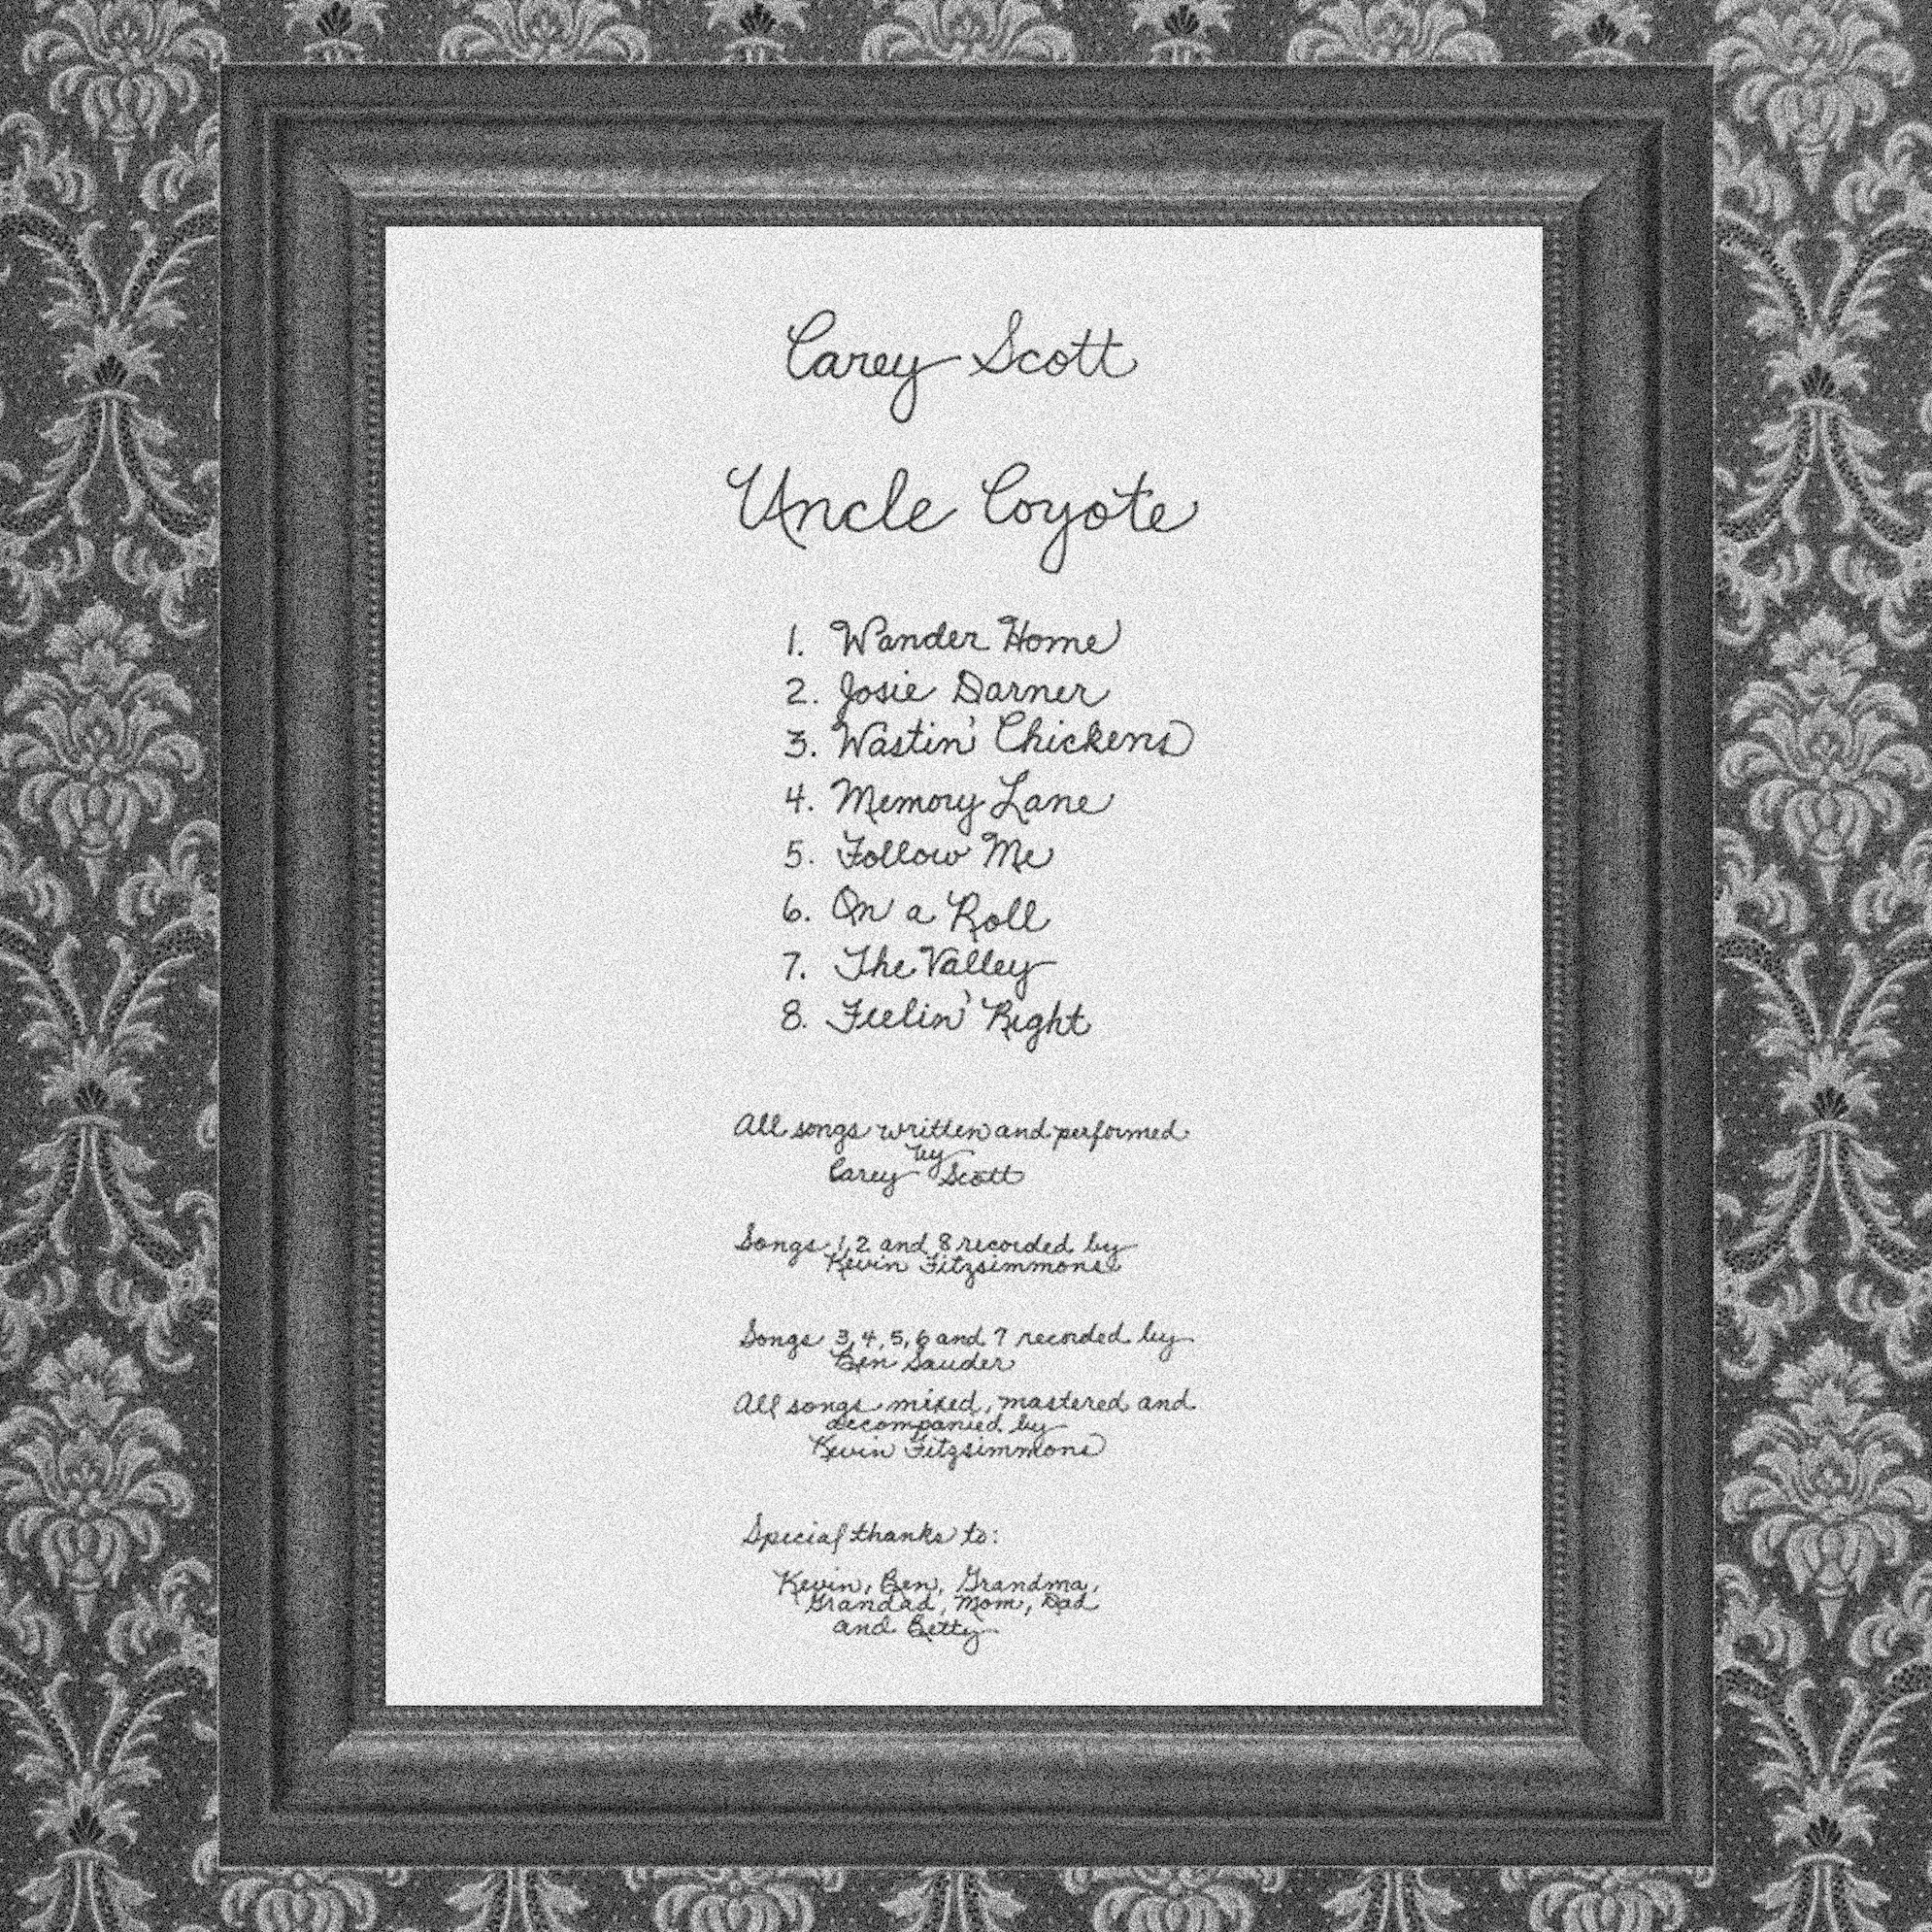 Carey Scott
Uncle Coyote
1. Wander Home
2. Josie Darner
3. Wastin' Chickens
4. Memory Lane
5. Follow Me
6. On a Roll
7. The Valley
8. Feelin' Right
All songs written and performed
by
Carey Scott
Songs 1, 2 and 8 recorded by
Kevin Fitzsimmons
Songs 3, 4, 5, 6 and 7 recorded by
Ben Sauder
All songs mixed, mastered and
accompanied by
Kevin Fitzsimmons
Special thanks to:
Kevin, Ben, Grandma,
Grandad, Mom, Dad
and Betty